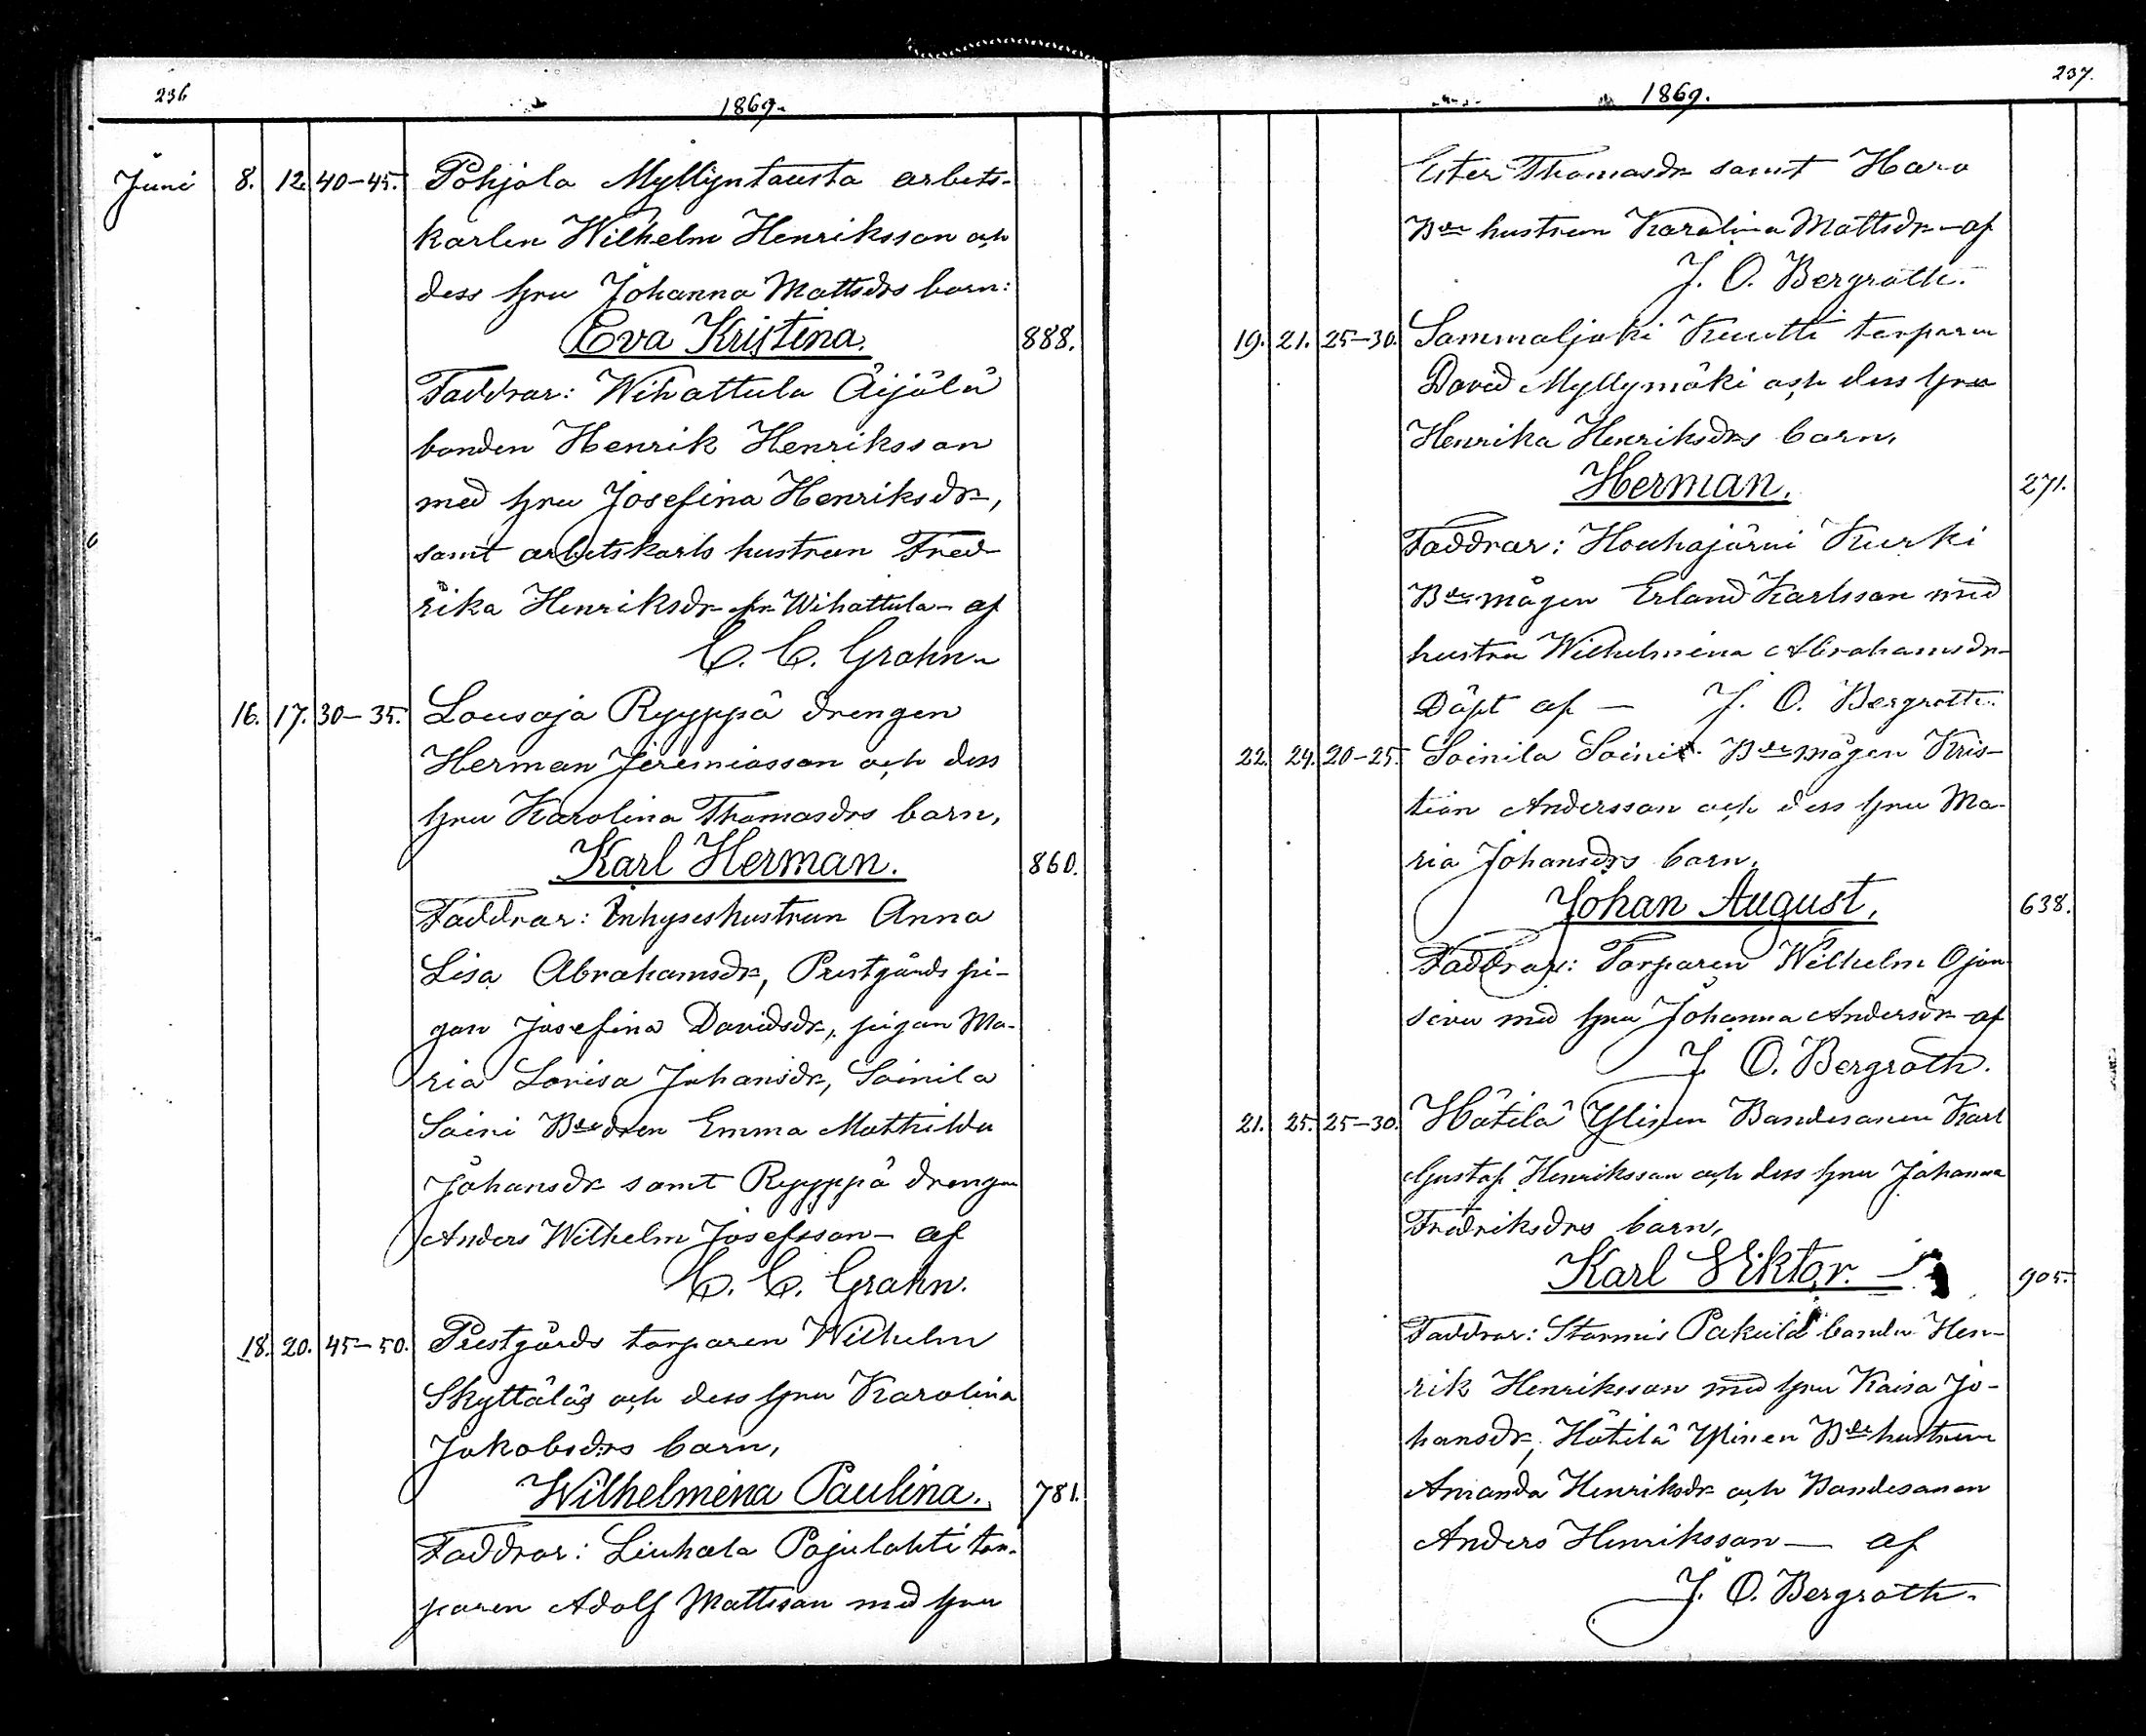 236
1869.
Juni 8. 12. 40-45. Pohjola Myllyntausta arbets-
karlen Wilhelm Henriksson och
dess hru Johanna Mattsdrs barn:
Eva Kristina. 888.
Faddrar: Wihattula Äijälä
bonden Henrik Henriksson
med hru Josefina Henriksdr,
samt arbetskarls hustrun Fred-
rika Henriksdr fr. Wihattula - af
C. C. Grahn.
16. 17. 30-35. Lousaja Ryyppä drengen
Herman Jeremiasson och dess
hru Karolina Thomasdrs barn,
Karl Herman. 860.
Faddrar: Inhyseshustrun Anna
Lisa Abrahamsdr, Prestgårds pi-
gan Josefina Davidsdr, pigan Ma-
ria Lovisa Johansdr, Sainila
Saini Bde dren Emma Mathilda
Johansdr samt Ryyppä drengen
Anders Wilhelm Josefsson - af
C. C. Grahn.
18. 20. 45-50. Prestgårds torparen Wilhelm
Skyttäläs och dess hru Karolina
Jakobsdrs barn,
Wilhelmina Paulina. 781.
Faddrar: Liuhala Pajulahti tor-
paren Adolf Mattsson med hru
237.
1869.
Ester Thomasdr samt Hara
Bde hustrun Karolina Mattsdr - af
J. O. Bergroth.
19. 21. 25-30. Sammaljoki Knuutti torparen
David Myllymäki och dess hru
Henrika Henriksdrs barn,
Herman. 271.
Faddrar: Houhajärvi Kurki
Bde mågen Erland Karlsson med
hustru Wilhelmina Abrahamsdr
Döpt af - J. O. Bergroth.
22. 24. 20-25. Sainila Saini Bde mågen Kris-
tian Andersson och dess hru Ma-
ria Johansdrs barn,
Johan August. 638.
Faddrar: Torparen Wilhelm Ojan-
sivu med hru Johanna Andersdr af
J. O. Bergroth.
21. 25. 25-30. Hätilä Ylinen Bondesonen Karl
Gustaf Henriksson och dess hru Johanna
Fredriksdrs barn,
Karl Viktor. - 905.
Faddrar: Stormis Pakula bonden Hen-
rik Henriksson med hru Kaisa Jo-
hansdr, Hätilä Ylinen Bde hustrun
Amanda Henriksdr och Bondesonen
Anders Henriksson - af
J. O. Bergroth.